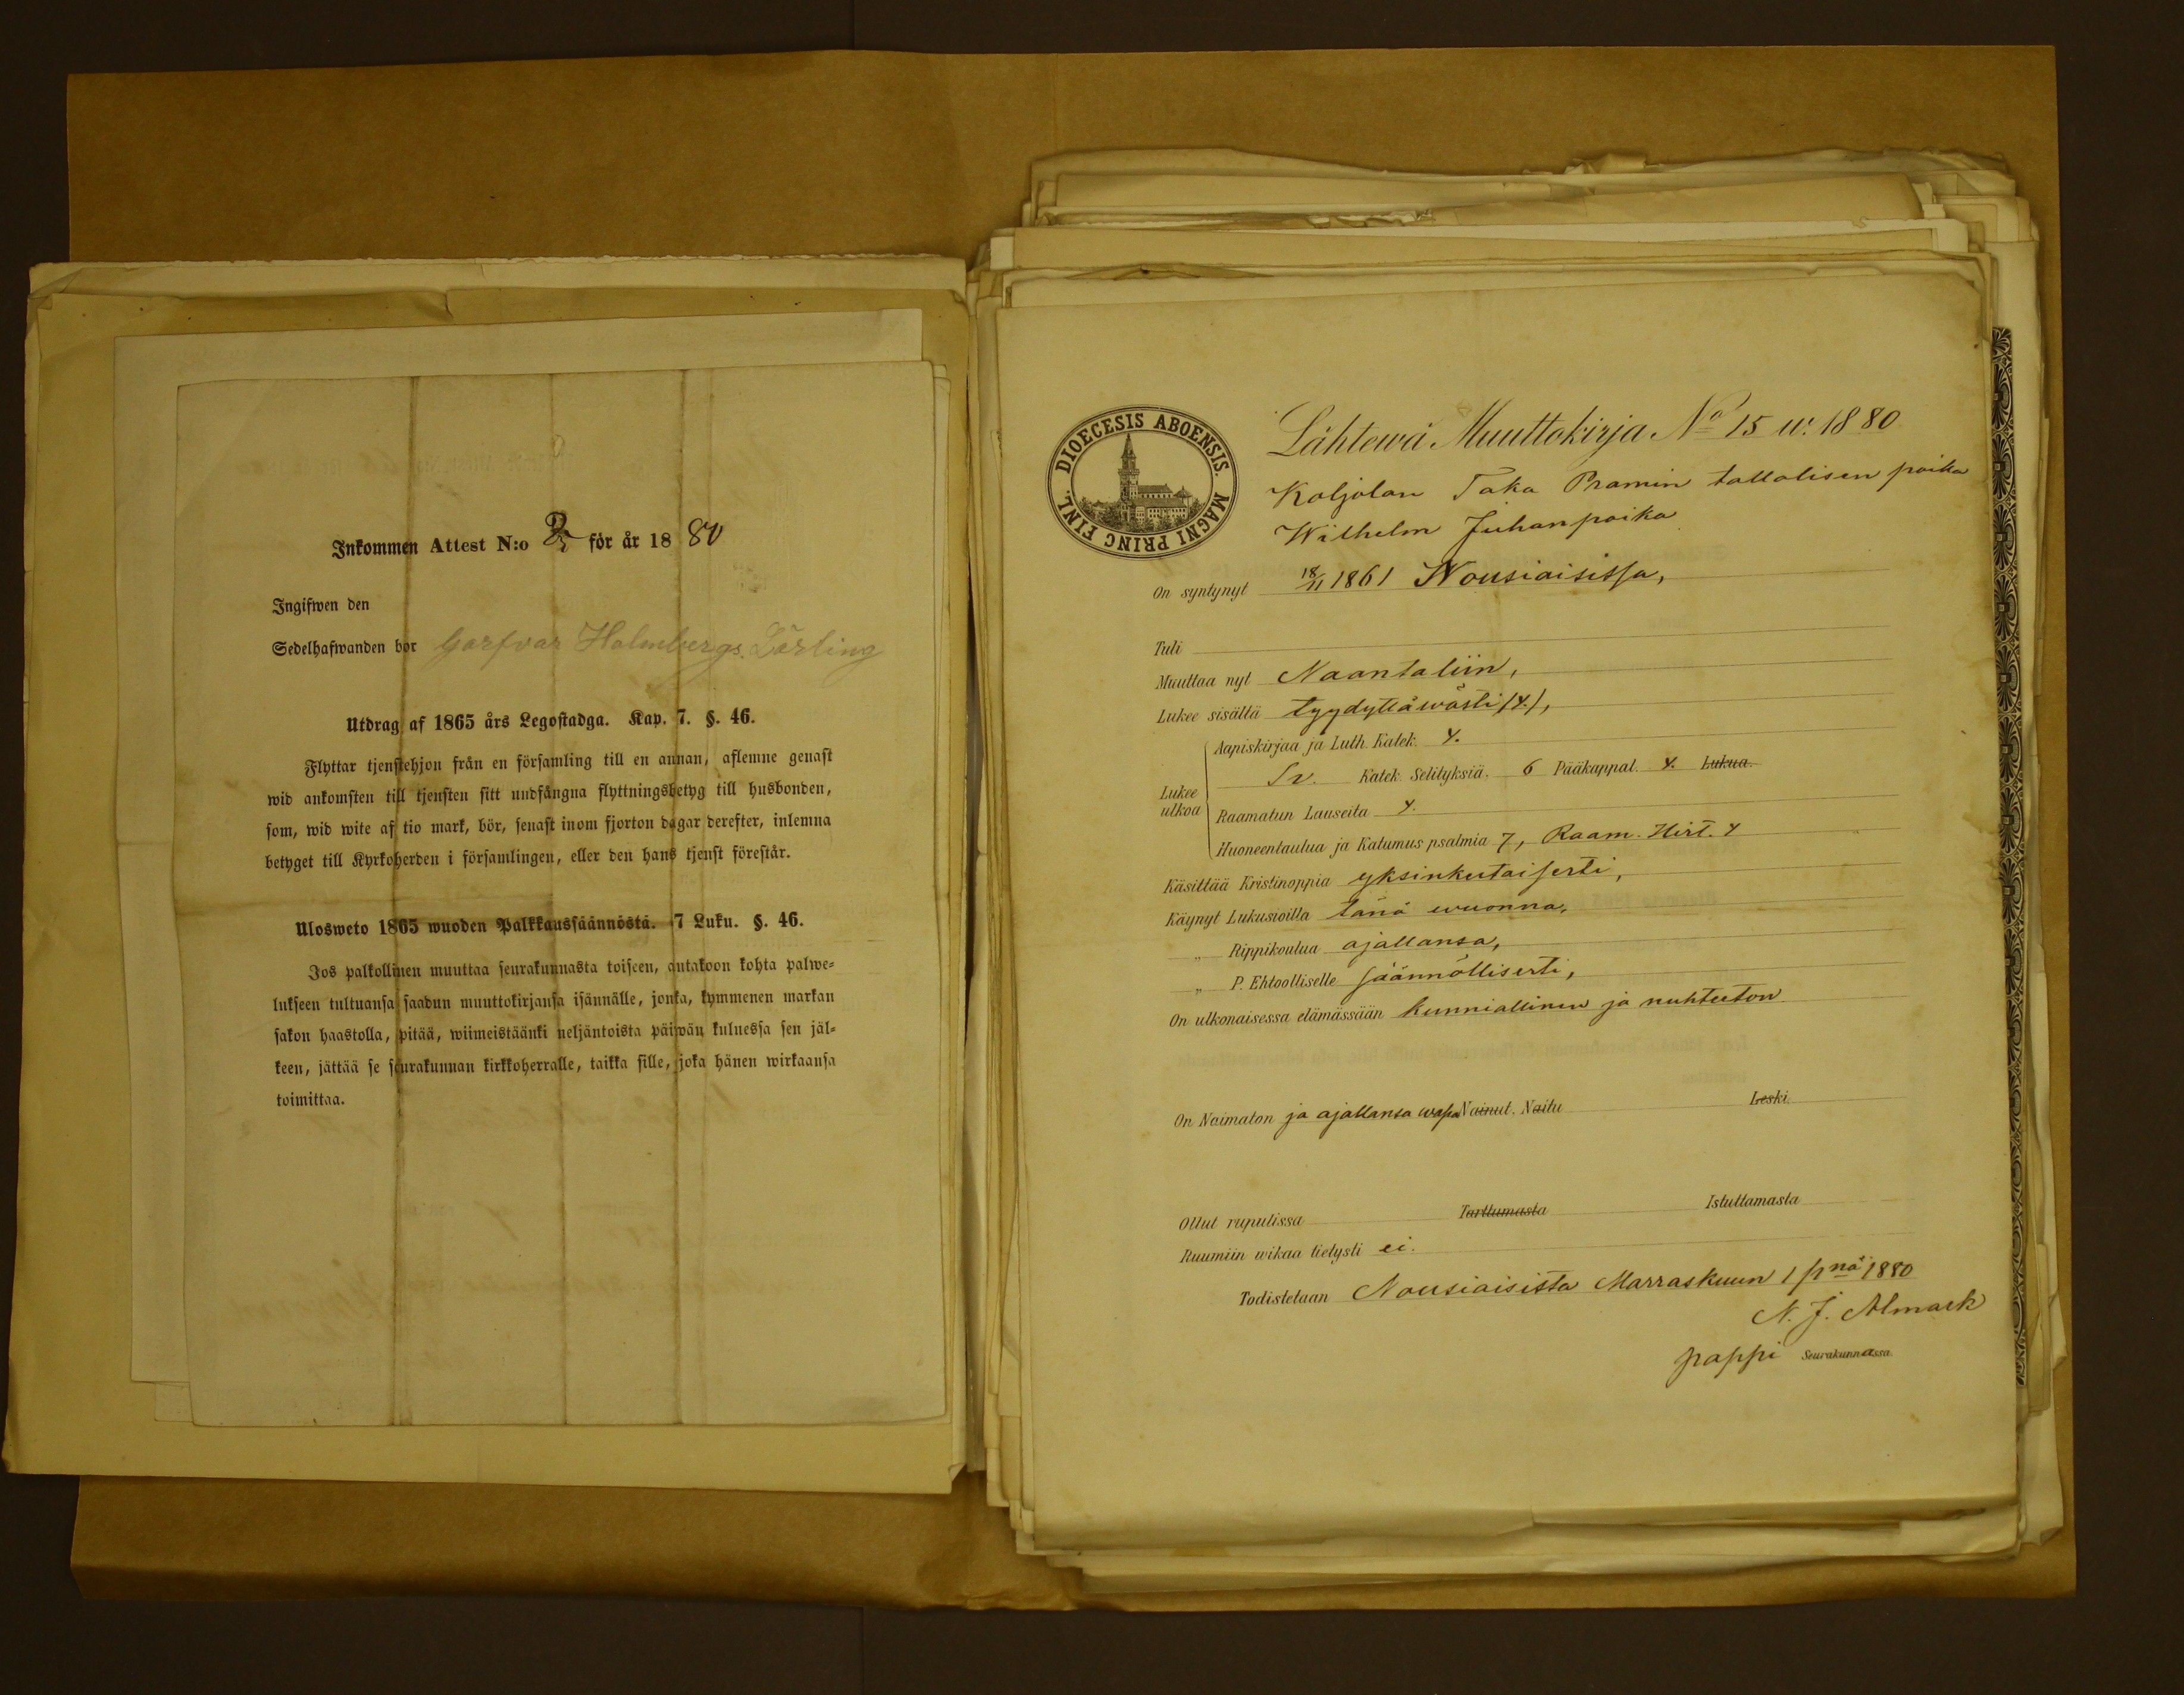 Inkommen Attest N:o 25 för år 1880
Ingifwen den
Sedelhafwanden bor Garfvar Holmbergs Lärling
Utdrag af 1865 års Legostadga. Kap. 7. §. 46.
Flyttar tjenstehjon från en församling till en annan, aflemne genast
wid ankomsten till tjensten sitt undfångna flyttningsbetyg till husbonden,
som, wid wite af tio mark, bör, senast inom fjorton dagar derefter, inlemna
betyget till Kyrkoherden i församlingen, eller den hans tjenst förestår.
Ulosweto 1865 wuoden Palkkaussäännöstä. 7 Luku. §. 46.
Jos palkollinen muuttaa seurakunnasta toiseen, antakoon kohta palwe-
lukseen tultuansa saadun muuttokirjansa isännälle, jonka, kymmenen markan
sakon haastolla, pitää, wiimeistäänki neljäntoista päiwän kulnessa sen jäl-
keen, jättää se seurakunnan kirkkoherralle, taikka sille, joka hänen wirkaansa
toimittaa.
DIOECESIS ABOENSIS. MAGNI PRINC FINL.
Lähtewä Muuttokirja No 15 w: 1880
Koljolan Taka Pramin tallalisen poika
Wilhelm Juhanpoika
On syntynyt 18/11 1861 Nousiaisissa,
Tuli
Muuttaa nyt Naantaliin,
Lukee sisältä tyydyttäwästi (4.),
Aapiskirjaa ja Luth. Katek. 4.
Sv. Katek. Selityksiä. 6 Pääkappal. 4. Lukua.
Lukee
ulkoa
Raamatun Lauseita 4.
Huoneentaulua ja Katumus psalmia 7, Raam. Hist. 4
Käsittää Kristinoppia yksinkertaisesti,
Käynyt Lukusioilla tänä wuonna,
" Rippikoulua ajallansa,
" P. Ehtoolliselle säännöllisesti,
On ulkonaisessa elämässään kunniallinen ja nuhteeton
On Naimaton ja ajallansa wapa Nainut. Naitu Leski.
Ollut rupulissa Tarttumasta Istuttamasta
Ruumiin wikaa tietysti ei.
Todistetaan Nousiaisista Marraskuun 1 pnä 1880
N. J. Almark
pappi Seurakunnassa.